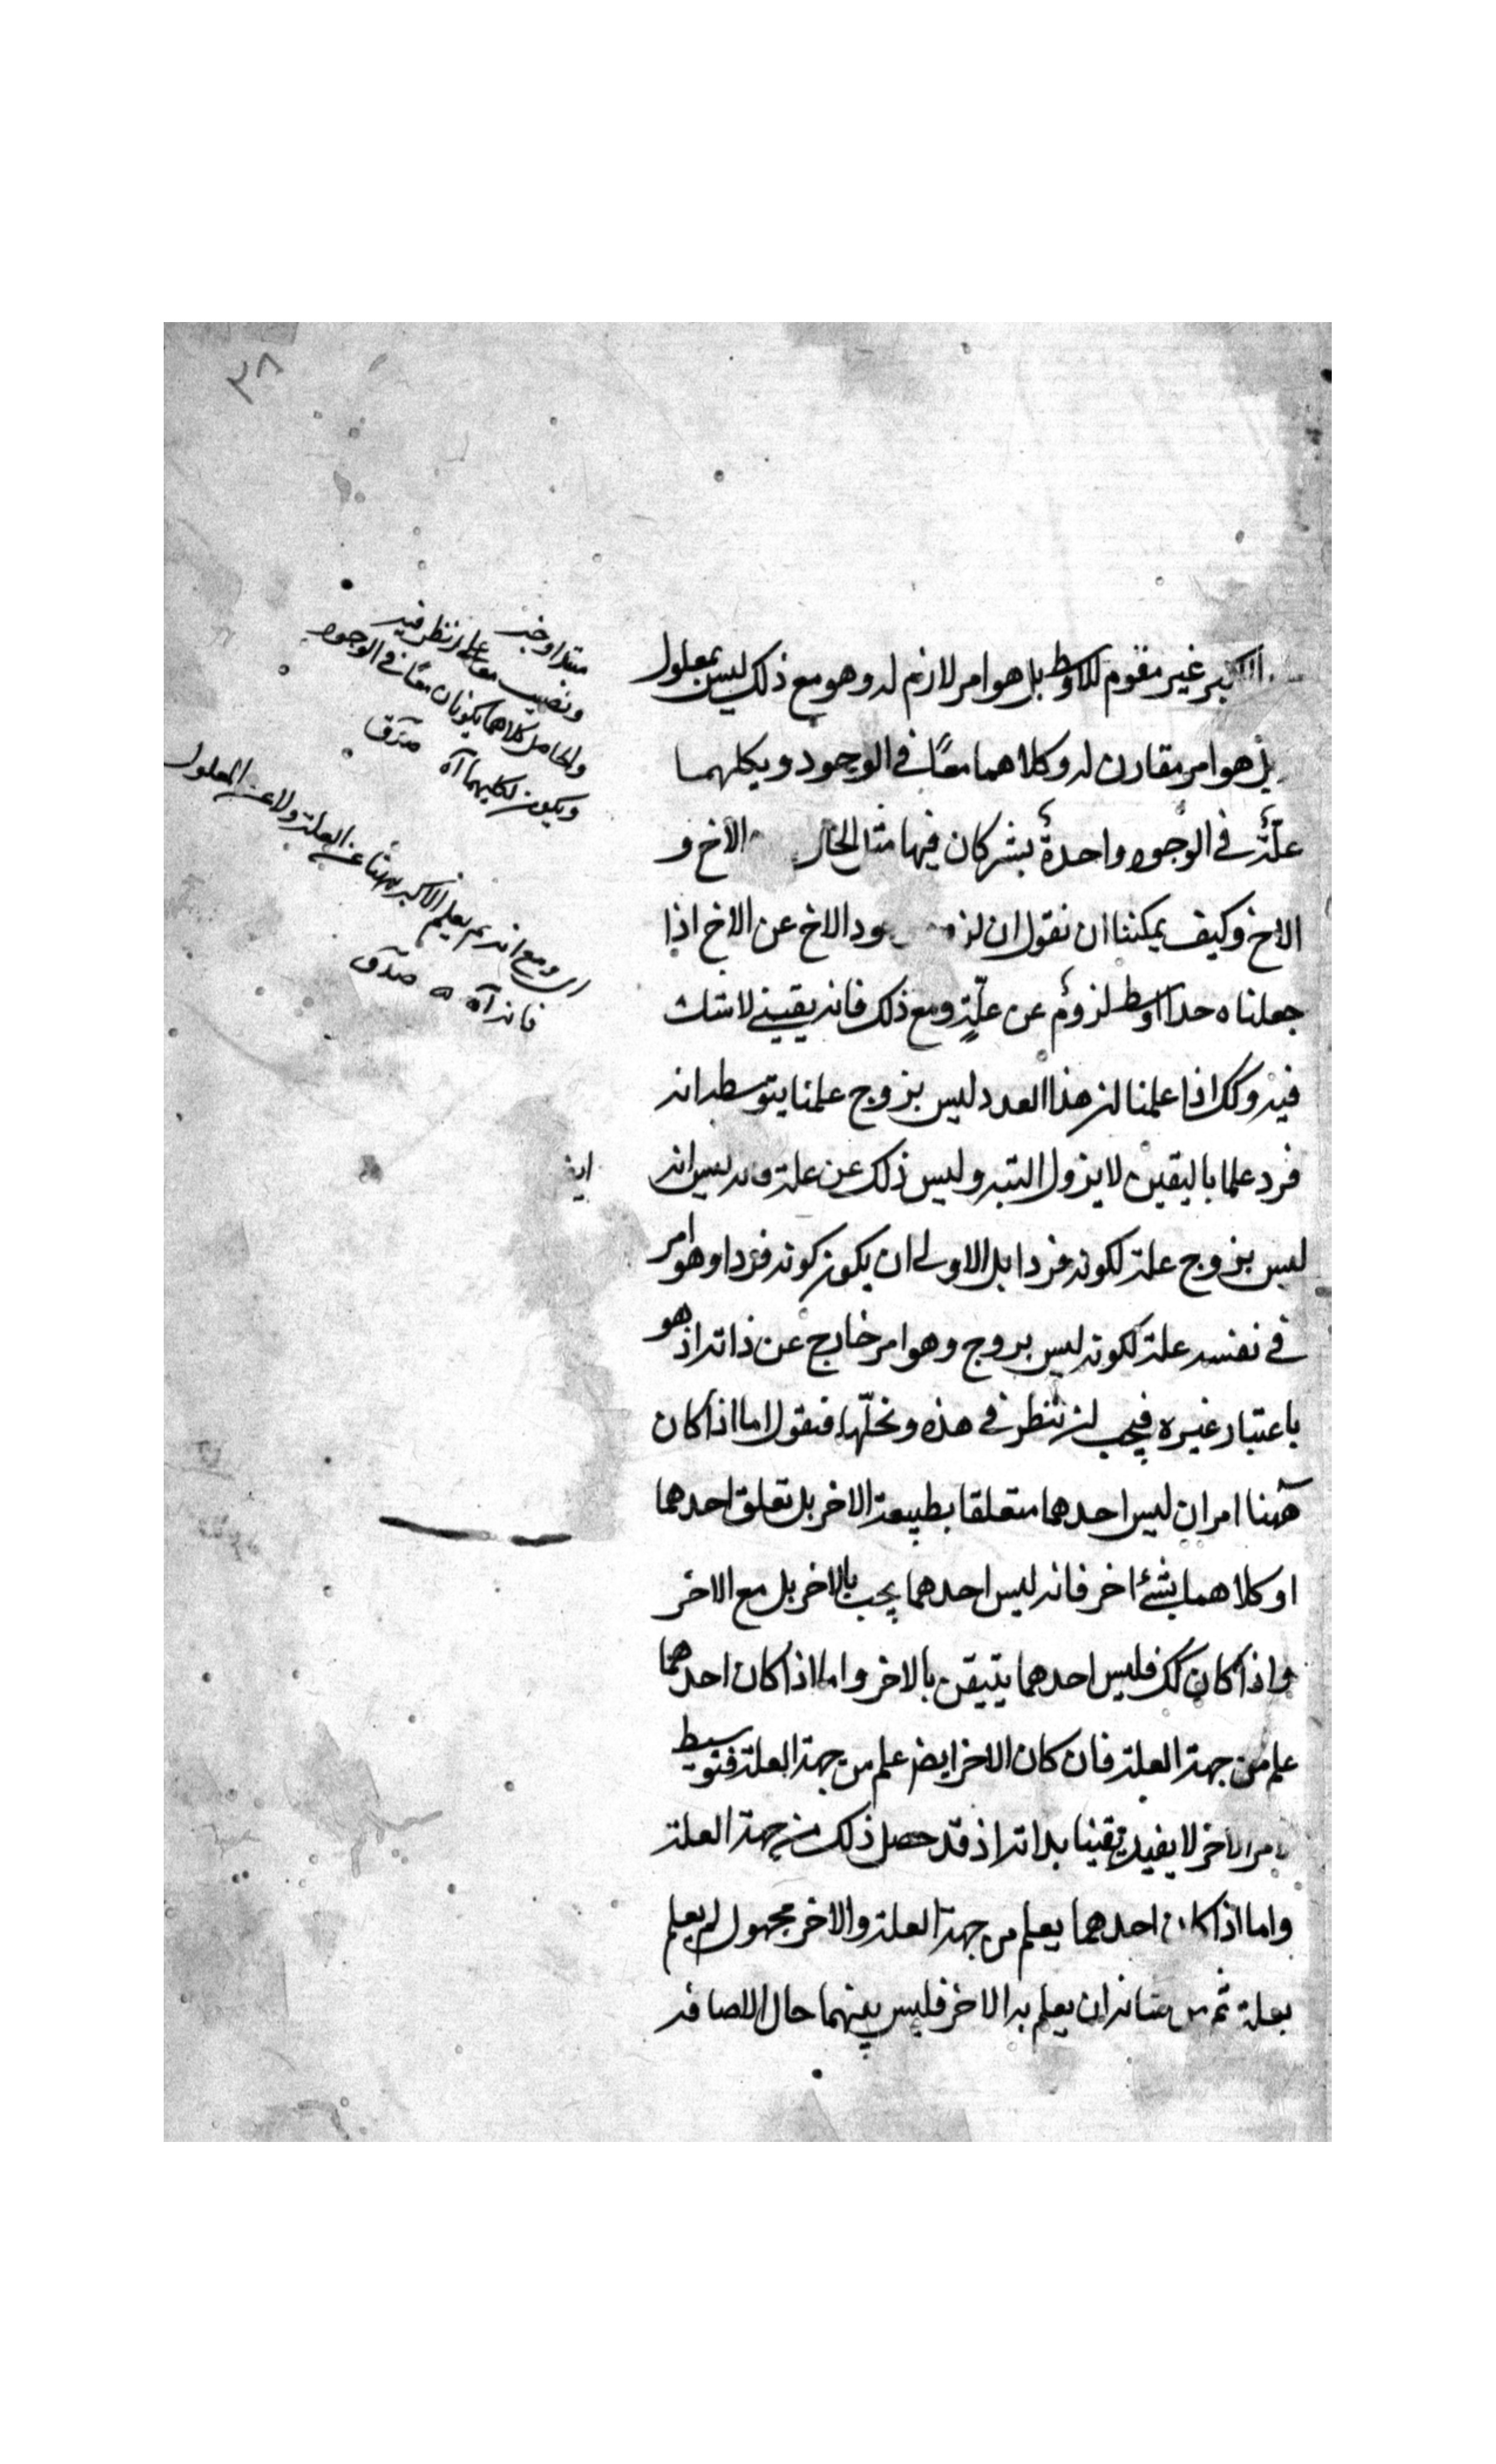 ٣٨
الاكبر غير مقوم للاوسط بل هو امر لازم له وهو مع ذلك ليس بمعلول
بل هو امر مقارن له وكلاهما معًا فى الوجود ويكلهما
علّة فى الوجود واحدة يشتركان فيها مثل الاخ و
الاخ وكيف يمكننا ان نقول ان الاخ عن الاخ اذا
جعلناه حدا اوسط لزوم عن علّة ومع ذلك فانه يقينى لا شك
فيه وكك اذا علمنا ان هذا العدد ليس بزوج علمنا بتوسطه انه
فرد علما باليقين لا يزول البته وليس ذلك عن علة ليس انه
ليس بزوج علة لكونه فردا بل الاولى ان يكون كونه فردا وهو امر
فى نفسه علة لكونه ليس بزوج وهو امر خارج عن ذاته اذ هو
باعتبار غيره فيجب ان ننظر فى هذه ونحلّها فنقول اما اذا كان
ههنا امران ليس احدهما متعلقا بطبيعة الاخر بل تعلق احدهما
او كلاهما بشئ اخر فانه ليس احدهما يجب بالاخر بل مع الاخر
واذا كان كك فليس احدهما يتيقن بالاخر واما اذا كان احدهما
علم من جهة العلة فان كان الاخر ايض علم من جهة العلة فتوسيط
الاخر لا يفيد يقينا بذاته اذ قد حصل ذلك من جهة العلة
واما اذا كان احدهما يعلم من جهة العلة والاخر مجهول لم يعلم
بعلة ثم من شانه ان يعلم به الاخر فليس بينهما حال الاضافة
مبتدا وخبر
ونصيب معا على نظر فيه
والحاصل كلاهما يكونان معًا فى الوجود
ويكون لكليهما آه صدق
اى ومع انه لم يعلم الاكبر ههنا عن العلة ولا عن المعلول
فانه آه صدق